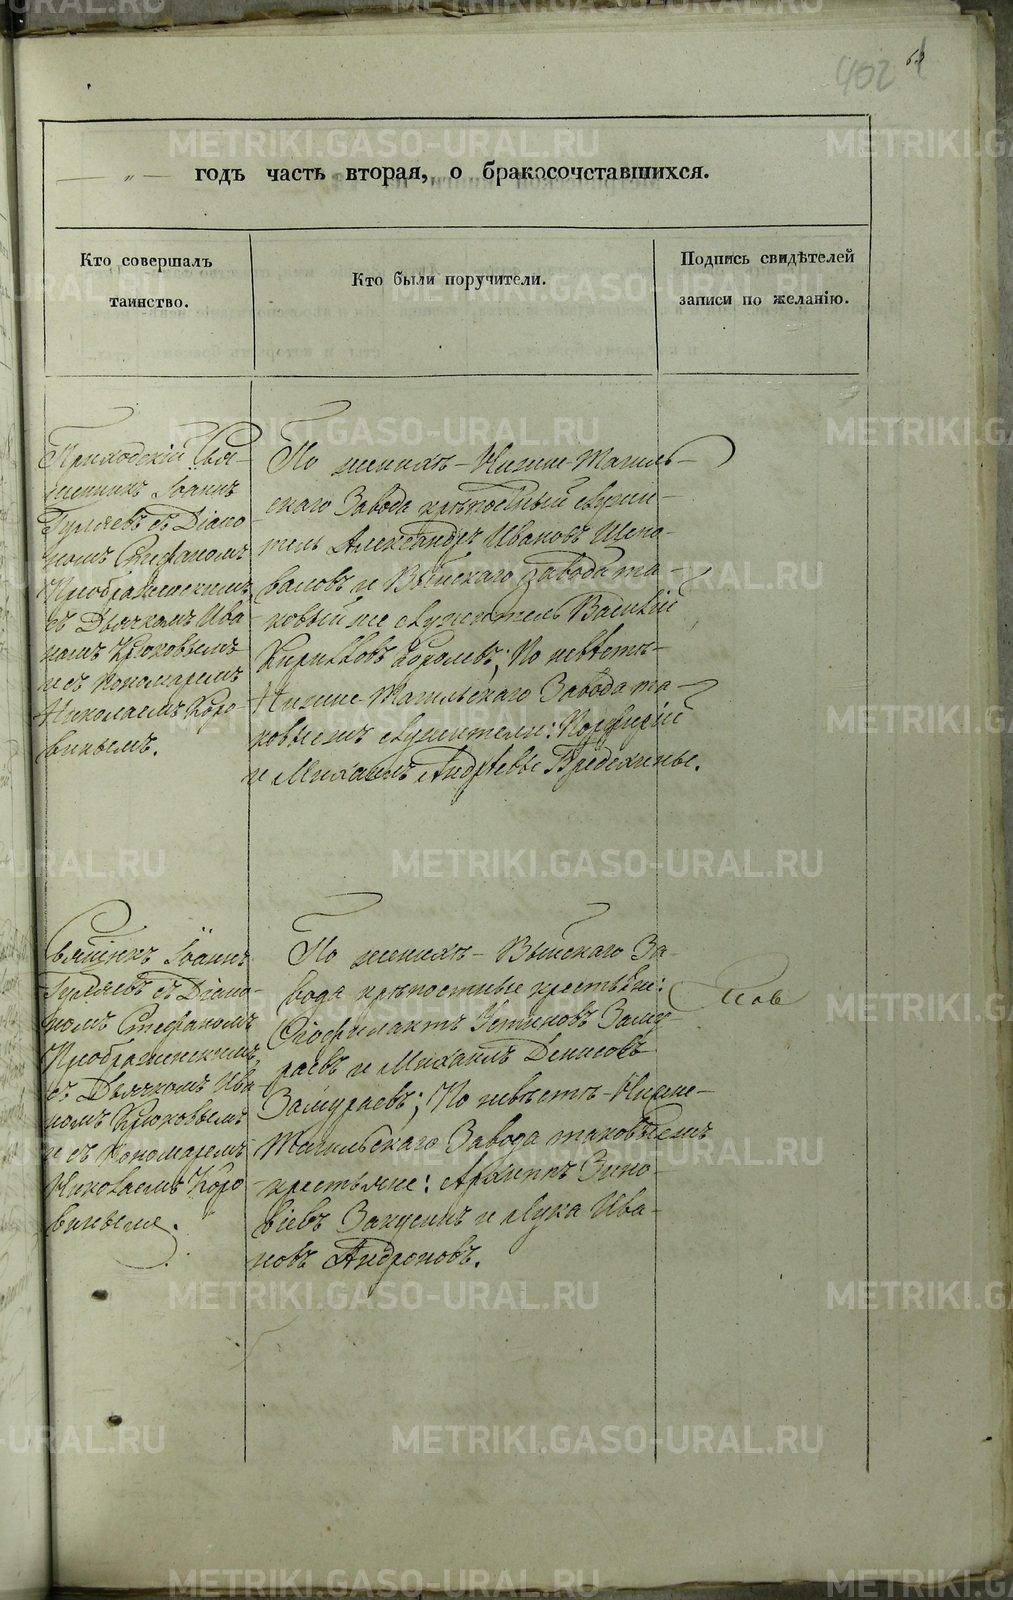 402
годъ часть вторая, о бракосочетавшихся.
Кто совершалъ
таинство.
Кто были поручители.
Подпись свидѣтелей
записи по желанію.
Приходскій Свя-
щенникъ Іоаннъ
Гуляевъ съ Діако-
номъ Стефаномъ
Преображенскимъ
съ Дьячкомъ Ива-
номъ Крюковымъ
и съ Пономаремъ
Николаемъ Коро-
винымъ.
По женихѣ - Нижне-Тагиль-
скаго Завода крѣпостный служи-
тель Александръ Ивановъ Шепо-
валовъ и Выйскаго завода та-
ковый же служитель Василій
Кириловъ Королевъ; По невѣстѣ-
Нижне-Тагильскаго Завода та-
ковыежъ служители: Порфирій
и Михаилъ Андреевы
Священникъ Іоаннъ
Гуляевъ съ Діако-
номъ Стефаномъ
Преображенскимъ,
съ Дьячкомъ Ива-
номъ Крюковымъ
и съ Пономаремъ
Николаемъ Коро-
винымъ.
По женихѣ - Выйскаго За-
вода крѣпостные крестьяне:
Феофилактъ Устиновъ Заму-
раевъ и Михаилъ Денисовъ
Замураевъ; По невѣстѣ - Нижне-
Тагильскаго Завода таковыежъ
крестьяне: Архиппъ Зино-
віевъ и Лука Ива-
новъ Андроновъ.
METRIKI.GASO-URAL.RU